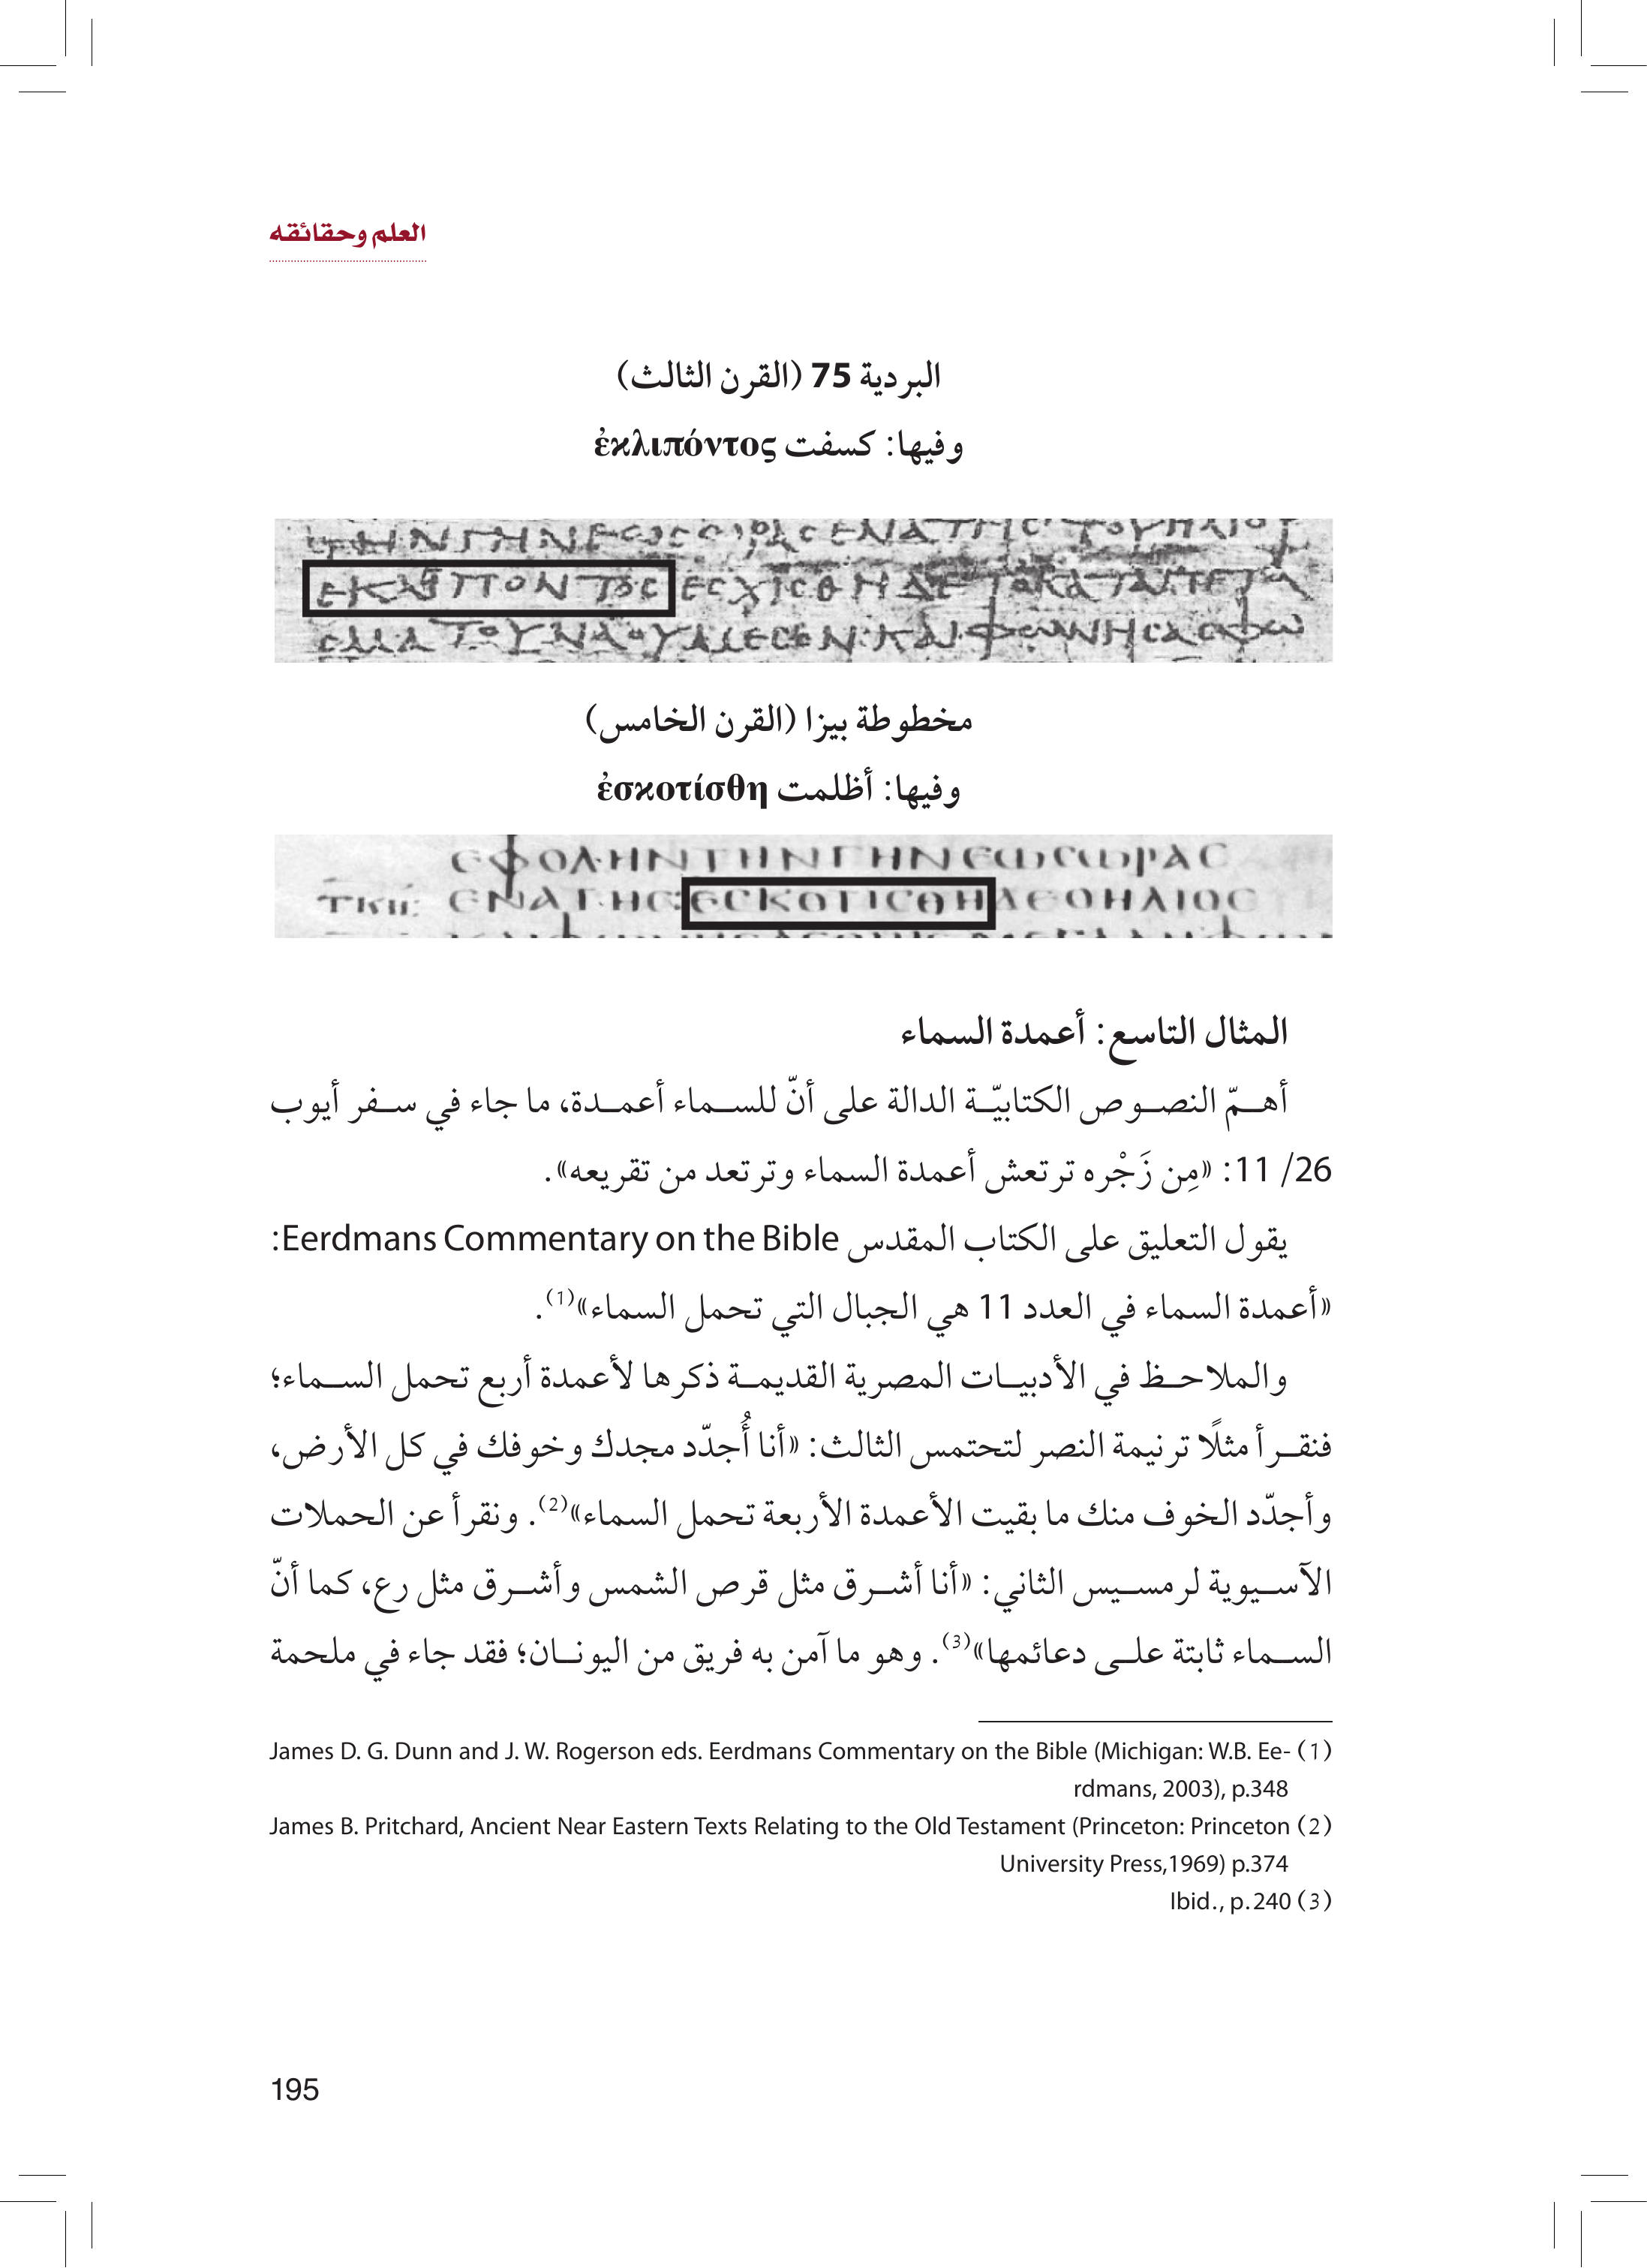 العلم وحقائقه
البردية 75 (القرن الثالث)
وفيها: كسفت ἐκλιπόντος
ΕΚΛΙΠΟΝΤΟΣ ΕΣΧΙΣΘΗΔΕΤΟΚΑΤΑΠΕΤΑ
مخطوطة بيزا (القرن الخامس)
وفيها: أظلمت ἐσκοτίσθη
ΕΦΟΛΗΝΤΗΝΓΗΝΕΩΣΩΡΑΣ
ΕΝΑΤΗΣ:ΕΣΚΟΤΙΣΘΗΔΕΟΗΛΙΟΣ
المثال التاسع: أعمدة السماء
أهمّ النصوص الكتابيّة الدالة على أنّ للسماء أعمدة، ما جاء في سفر أيوب
26/ 11: «مِن زَجْره ترتعش أعمدة السماء وترتعد من تقريعه».
يقول التعليق على الكتاب المقدس Eerdmans Commentary on the Bible:
«أعمدة السماء في العدد 11 هي الجبال التي تحمل السماء»(1).
والملاحظ في الأدبيات المصرية القديمة ذكرها لأعمدة أربع تحمل السماء؛
فنقرأ مثلًا ترنيمة النصر لتحتمس الثالث: «أنا أُجدّد مجدك وخوفك في كل الأرض،
وأجدّد الخوف منك ما بقيت الأعمدة الأربعة تحمل السماء»(2). ونقرأ عن الحملات
الآسيوية لرمسيس الثاني: «أنا أشرق مثل قرص الشمس وأشرق مثل رع، كما أنّ
السماء ثابتة على دعائمها»(3). وهو ما آمن به فريق من اليونان؛ فقد جاء في ملحمة
(1) James D. G. Dunn and J. W. Rogerson eds. Eerdmans Commentary on the Bible (Michigan: W.B. Ee-
rdmans, 2003), p.348
(2) James B. Pritchard, Ancient Near Eastern Texts Relating to the Old Testament (Princeton: Princeton
University Press,1969) p.374
(3) Ibid., p.240
195